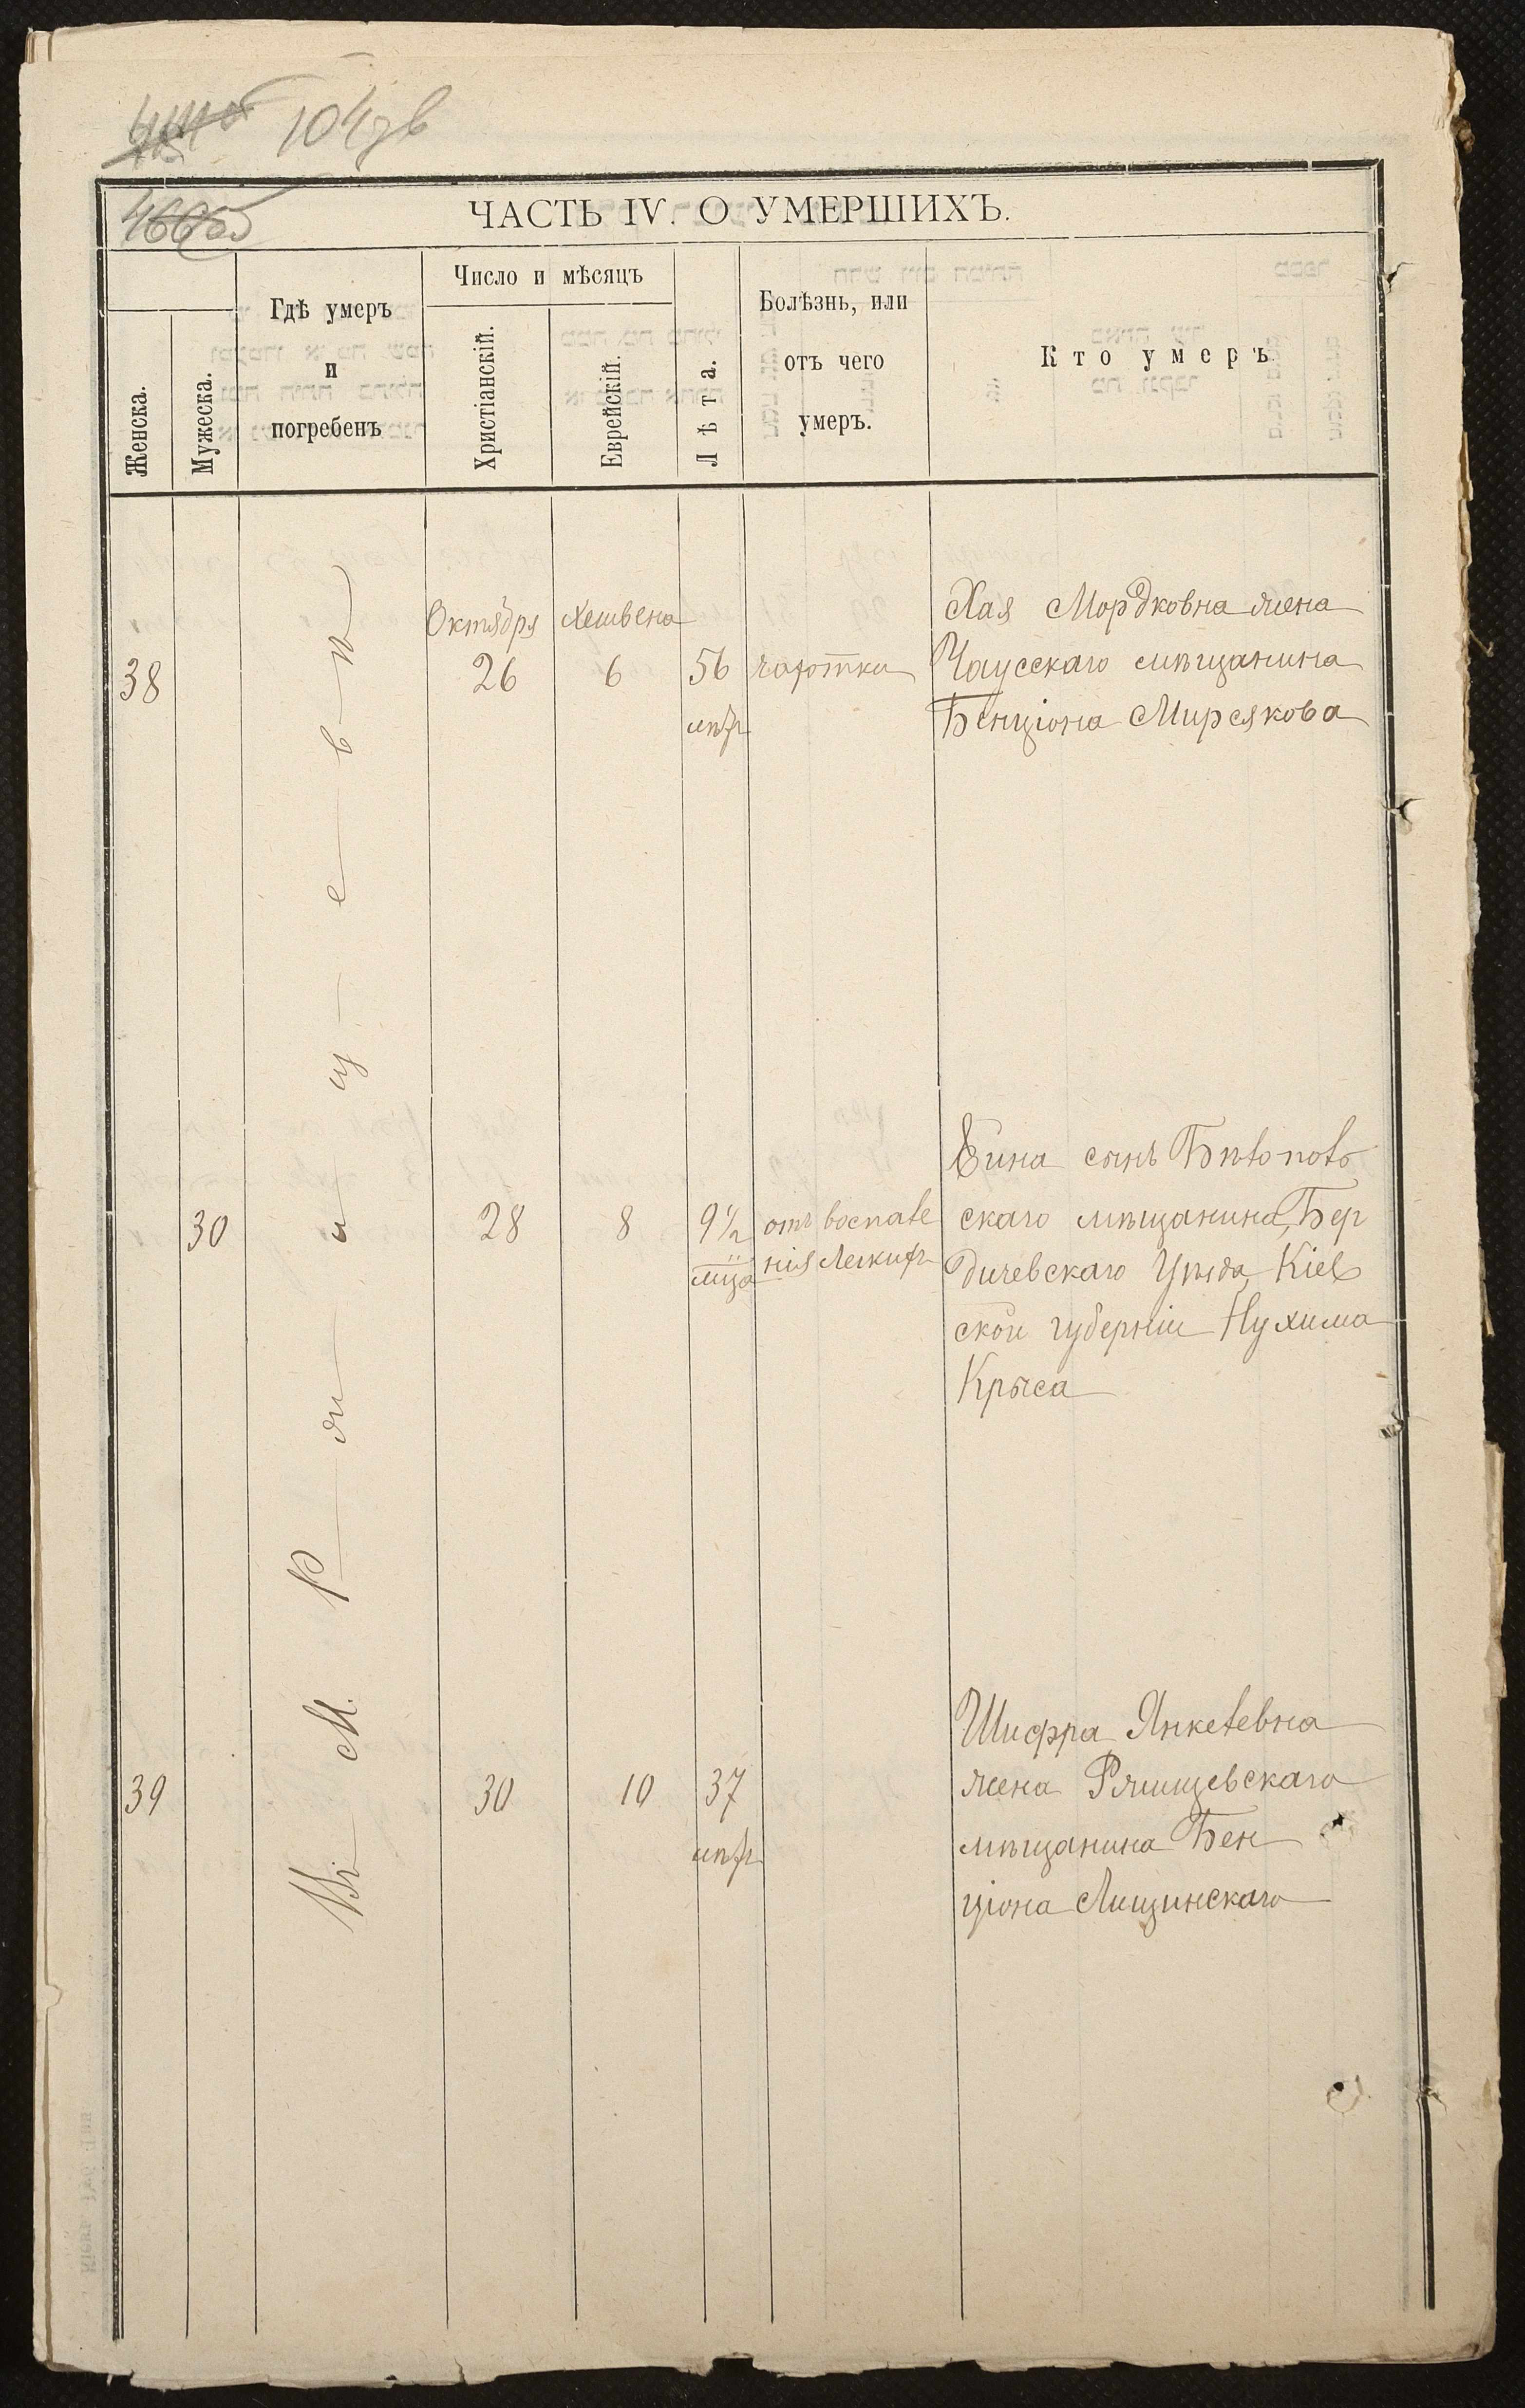 104 зв
ЧАСТЬ IV. О УМЕРШИХЪ.
Женска.
Мужеска.
Гдѣ умеръ
и
погребенъ
Число и мѣсяцъ
Христіанскій.
Еврейскій.
Лѣта.
Болѣзнь, или
отъ чего
умеръ.
Кто умеръ
Въ М. Ржищевѣ
Октября Хешвена
38 26 6 56 чахотки
лѣтъ
Хая Мордковна жена
Чаусскаго мѣщанина
Бенціона Мирсякова
30 28 8 9½ отъ воспале
м-ца нія Легкихъ
сынъ Бѣлополь
скаго мѣщанина, Бер
дичевскаго Уѣзда, Кіев
ской губерніи Нухима
Крыса
39 30 10 37
лѣтъ
Шифра Янкелевна
жена Ржищевскаго
мѣщанина Бен
ціона Лищинскаго